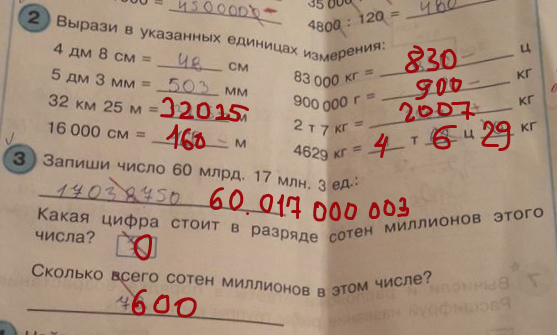 4500000
35 000
4800 : 120 = 480
2 Вырази в указанных единицах измерения:
4 дм 8 см = 48 см
83 000 кг = 830 ц
5 дм 3 мм = 503 мм
900 000 г = 900 кг
32 км 25 м = 32025 м
2 т 7 кг = 2007 кг
16 000 см = 160 м
4629 кг = 4 т 6 ц 29 кг
3 Запиши число 60 млрд. 17 млн. 3 ед.:
17038750 60.017 000 003
Какая цифра стоит в разряде сотен миллионов этого
числа? 0
Сколько всего сотен миллионов в этом числе?
600